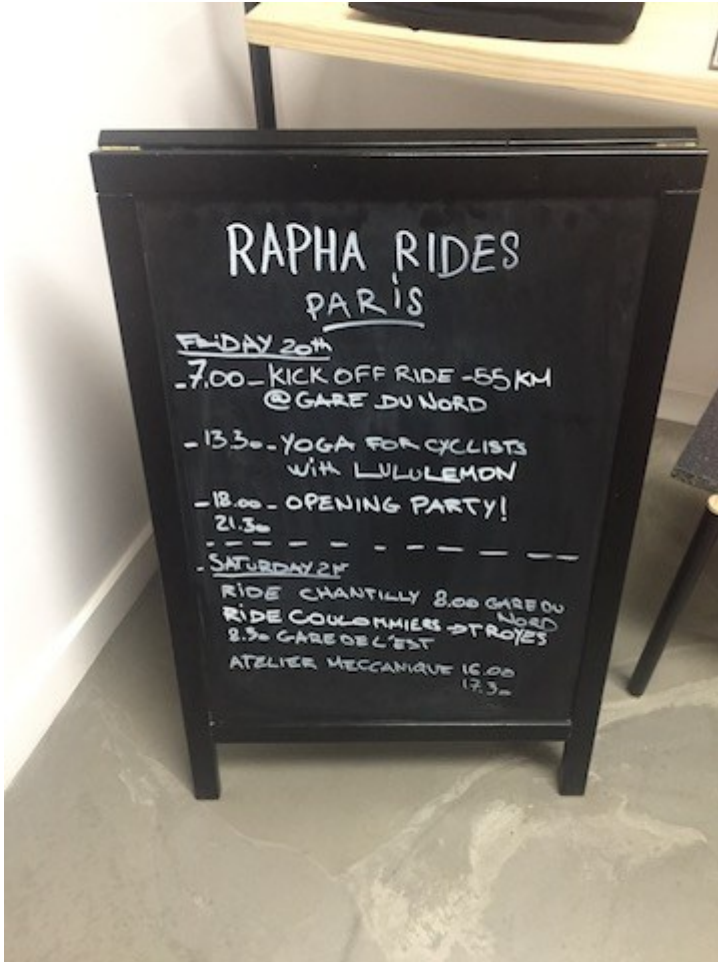 RAPHA RIDES
PARIS
FRIDAY 20th
-7.00-KICK OFF RIDE -55 KM
@ GARE DU NORD
-13.30-YOGA FOR CYCLISTS
with LULULEMON
-18.00- OPENING PARTY!
21.30
- SATURDAY 21st
RIDE CHANTILLY 8.00 GARE DU
NORD
RIDE COULOMMIERS → TROYES
8.30 GARE DE L'EST
ATELIER MECCANIQUE 16.00
17.30